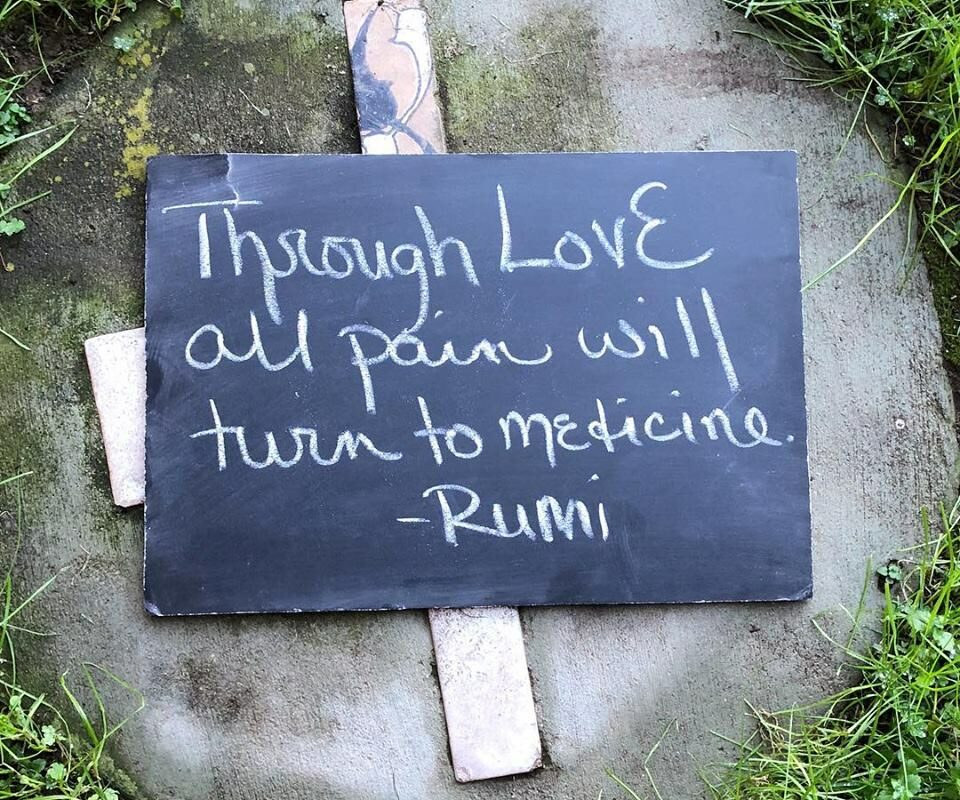 Through LovE
all pain will
turn to medicine.
-Rumi